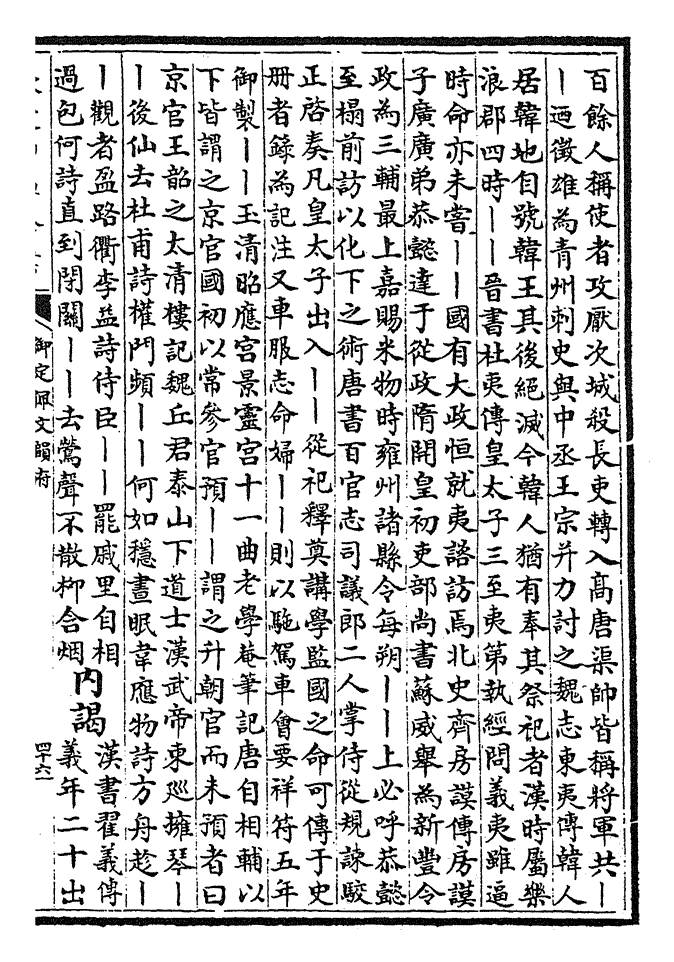 百餘人稱使者攻厭次城殺長吏轉入高唐渠帥皆稱將軍共｜
｜迺徵雄為青州刺史與中丞王宗并力討之魏志東夷傳韓人
居韓地自號韓王其後絕滅今韓人猶有奉其祭祀者漢時屬樂
浪郡四時｜｜晉書杜夷傳皇太子三至夷第執經問義夷雖逼
時命亦未嘗｜｜國有大政恒就夷諮訪焉北史齊房謨傳房謨
子廣廣弟恭懿達于從政隋開皇初吏部尚書蘇威舉為新豐令
政為三輔最上嘉賜米物時雍州諸縣令每朔｜｜上必呼恭懿
至榻前訪以化下之術唐書百官志司議郎二人掌侍從規諫駮
正啓奏凡皇太子出入｜｜從祀釋奠講學監國之命可傳于史
册者錄為記注又車服志命婦｜｜則以駞駕車會要祥符五年
御製｜｜玉清昭應宮景靈宮十一曲老學菴筆記唐自相輔以
下皆謂之京官國初以常參官預｜｜謂之升朝官而未預者曰
京官王韶之太清樓記魏丘君泰山下道士漢武帝東巡擁琴｜
｜後仙去杜甫詩權門頻｜｜何如穩晝眠韋應物詩方舟趁｜
｜觀者盈路衢李益詩侍臣｜｜罷戚里自相
過包何詩直到閉關｜｜去鶯聲不散柳含烟
内謁
漢書翟義傳
義年二十出
御定佩文韻府
四十六